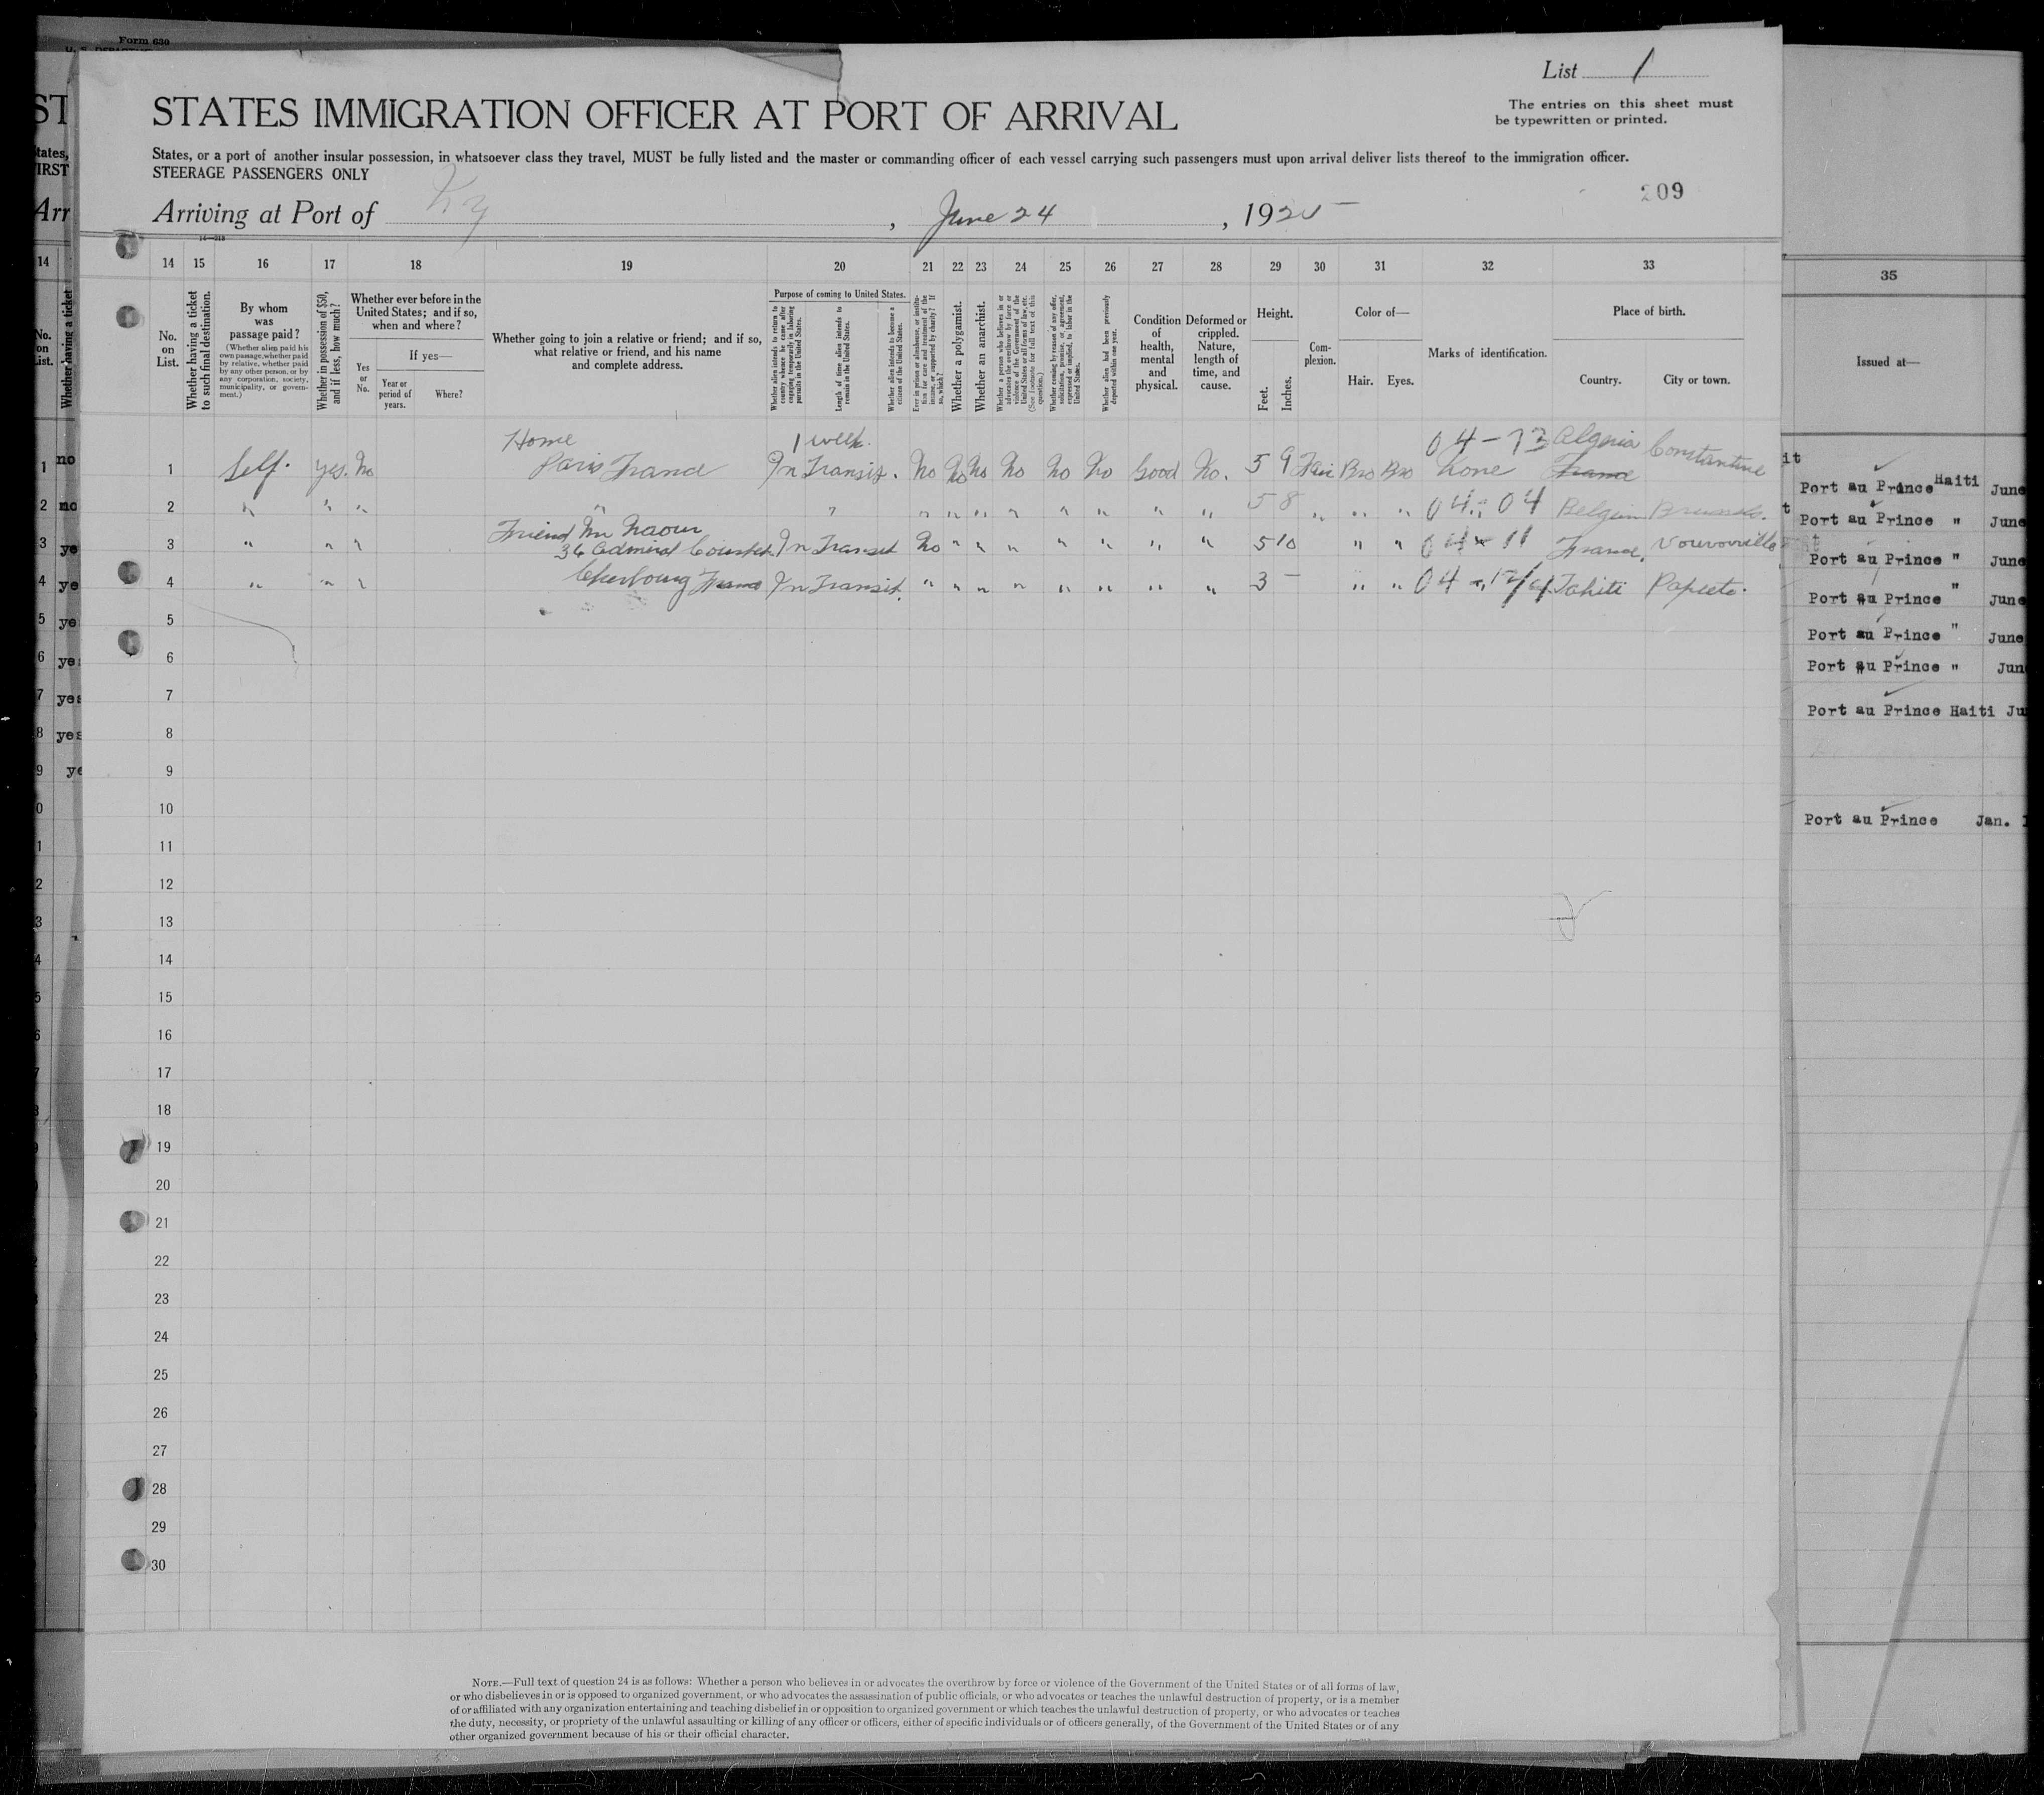 Form 630
List 1
STATES IMMIGRATION OFFICER AT PORT OF ARRIVAL
The entries on this sheet must
be typewritten or printed.
States, or a port of another insular possession, in whatsoever class they travel, MUST be fully listed and the master or commanding officer of each vessel carrying such passengers must upon arrival deliver lists thereof to the immigration officer.
STEERAGE PASSENGERS ONLY
209
Arriving at Port of Ny, June 24, 1925
14 15 16 17 18 19 20 21 22 23 24 25 26 27 28 29 30 31 32 33
35
No. on List.
Whether having a ticket to such final destination.
By whom was passage paid?
(Whether alien paid his own passage, whether paid by relative, whether paid by any other person, or by any corporation, society, municipality, or government.)
Whether in possession of $50, and if less, how much?
Whether ever before in the United States; and if so, when and where?
Yes or No.
If yes—
Year or period of years.
Where?
Whether going to join a relative or friend; and if so, what relative or friend, and his name and complete address.
Purpose of coming to United States.
Whether alien intends to return to country whence he came after engaging temporarily in laboring pursuits in the United States.
Length of time alien intends to remain in the United States.
Whether alien intends to become a citizen of the United States.
Ever in prison or almshouse, or institution for care and treatment of the insane, or supported by charity? If so, which?
Whether a polygamist.
Whether an anarchist.
Whether a person who believes in or advocates the overthrow by force or violence of the Government of the United States or all forms of law, etc. (See footnote for full text of this question.)
Whether coming by reason of any offer, solicitation, promise, or agreement, expressed or implied, to labor in the United States.
Whether alien had been previously deported within one year.
Condition of health, mental and physical.
Deformed or crippled. Nature, length of time, and cause.
Height.
Feet. Inches.
Complexion.
Color of—
Hair. Eyes.
Marks of identification.
Place of birth.
Country. City or town.
Issued at—
Home 1 week. 04-73 Algeria Constantine
1 Self. yes. No Paris France In Transit. No No No No No No Good No. 5 9 Fair Bro Bro None France
2 " " " " " " " " " " " " " 5 8 " " " 04 " 04 Belgium Brussels.
Friend Mr Naour
3 " " " 36 Admiral Courbet In Transit No " " " " " " " 5 10 " " 04 11 France.
4 " " " Cherbourg France In Transit. " " " " " " " " 3 - " " 04 Tahiti Papeete.
5
6
7
8
9
10
11
12
13
14
15
16
17
18
19
20
21
22
23
24
25
26
27
28
29
30
Port au Prince Haiti June
Port au Prince " June
Port au Prince " June
Port au Prince " June
Port au Prince " June
Port au Prince " Jun
Port au Prince Haiti Ju
Port au Prince Jan.
NOTE.—Full text of question 24 is as follows: Whether a person who believes in or advocates the overthrow by force or violence of the Government of the United States or of all forms of law,
or who disbelieves in or is opposed to organized government, or who advocates the assassination of public officials, or who advocates or teaches the unlawful destruction of property, or is a member
of or affiliated with any organization entertaining and teaching disbelief in or opposition to organized government or which teaches the unlawful destruction of property, or who advocates or teaches
the duty, necessity, or propriety of the unlawful assaulting or killing of any officer or officers, either of specific individuals or of officers generally, of the Government of the United States or of any
other organized government because of his or their official character.